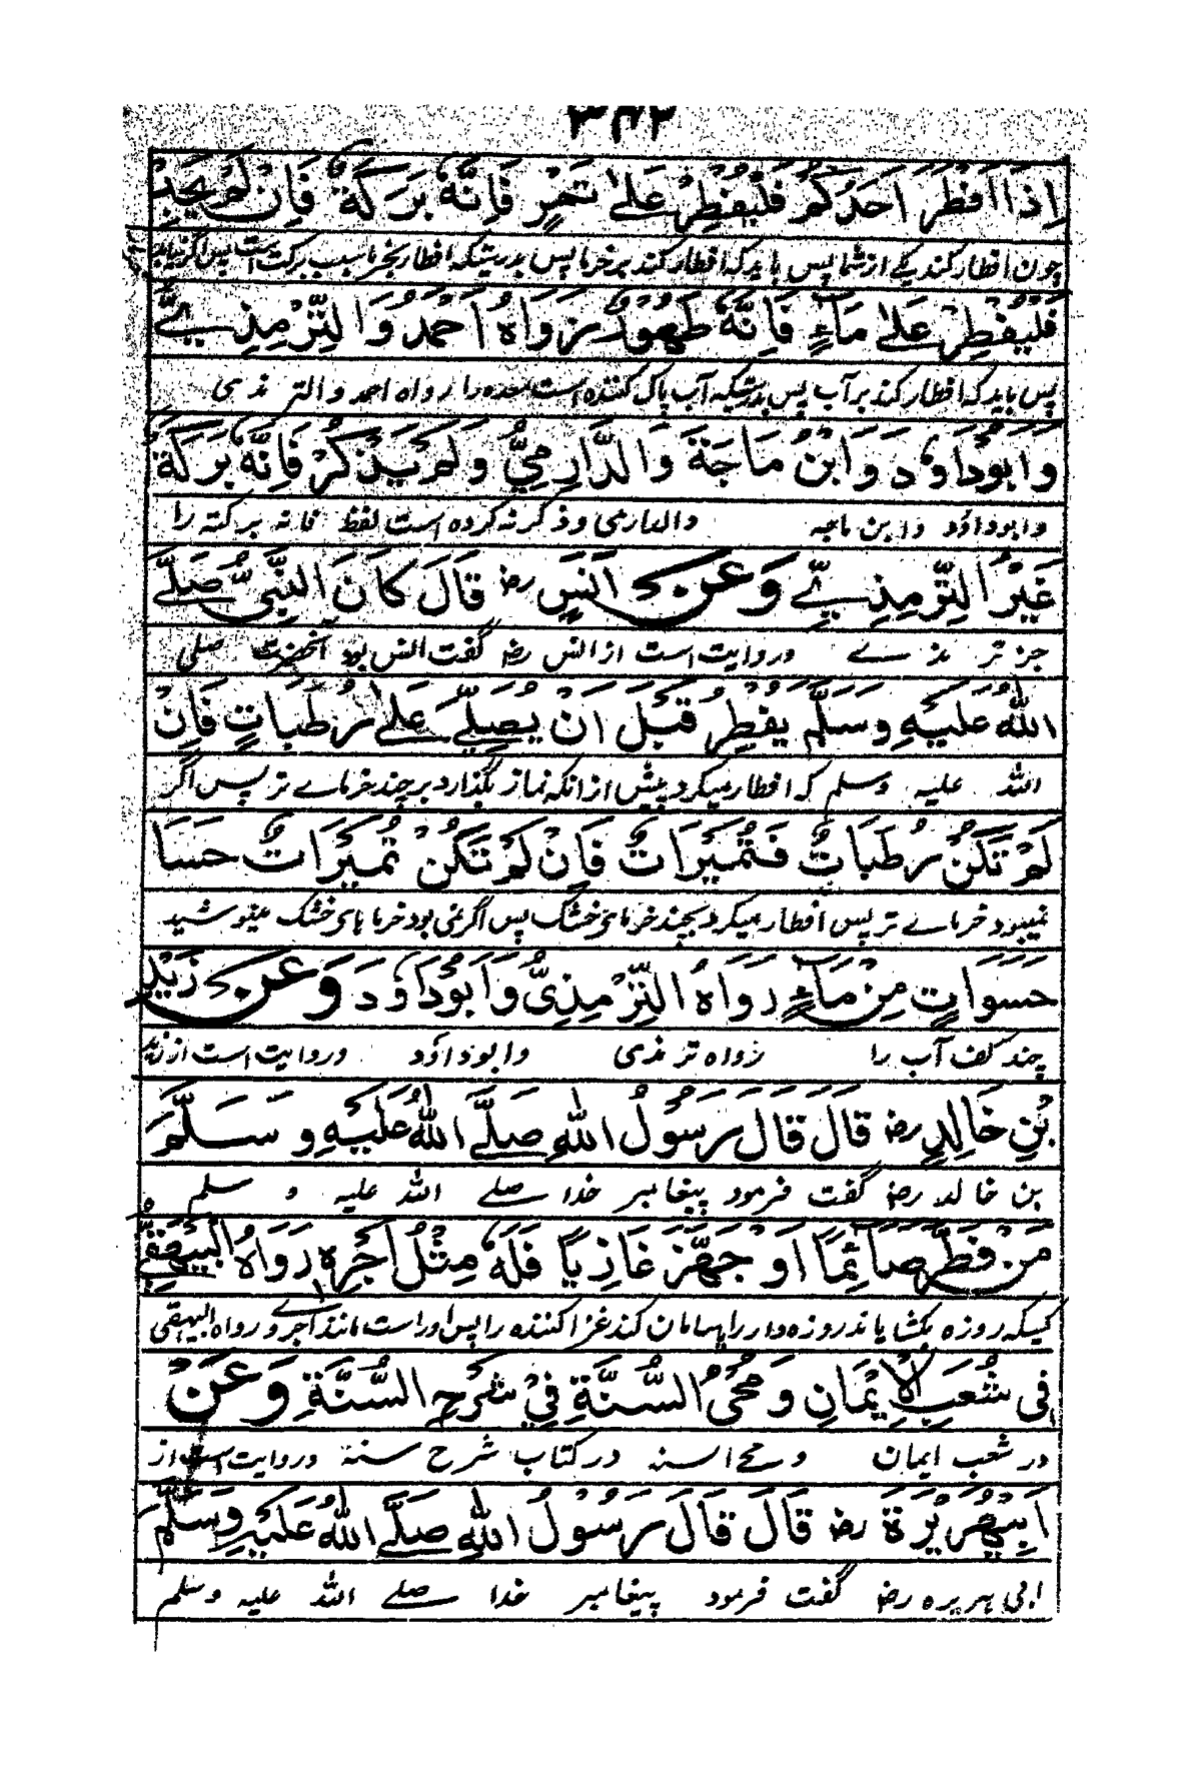 ۳۴۲
اِذَا اَفْطَرَ اَحَدُكُمْ فَلْيُفْطِرْ عَلٰى تَمْرٍ فَاِنَّهٗ بَرَكَةٌ فَاِنْ لَّمْ يَجِدْ
چون افطار کند یکے از شما پس باید که افطار کند بر خرما پس بدرستیکه افطار بخرما سبب برکت است پس اگر نیابد
فَلْيُفْطِرْ عَلٰى مَآءٍ فَاِنَّهٗ طَهُوْرٌ رَوَاهُ اَحْمَدُ وَالتِّرْمِذِيُّ
پس باید که افطار کند بر آب پس بدرستیکه آب پاک کننده است معده را رواه احمد والترمذی
وَاَبُوْدَاوٗدَ وَابْنُ مَاجَةَ وَالدَّارِمِيُّ وَلَمْ يَذْكُرْ فَاِنَّهٗ بَرَكَةٌ
وابوداؤد وابن ماجه والدارمی وذکر نه کرده است لفظ فانه برکته را
غَيْرُ التِّرْمِذِيِّ وَعَنْ اَنَسٍ رض قَالَ كَانَ النَّبِيُّ صَلَّى
جز ترمذے وروایت است از انس رض گفت انس بود آنحضرت صلی
اللهُ عَلَيْهِ وَسَلَّمَ يُفْطِرُ قَبْلَ اَنْ يُصَلِّيَ عَلٰى رُطَبَاتٍ فَاِنْ
الله علیه وسلم که افطار میکرد پیش از انکه نماز بگذارد بر چند خرماے تر پس اگر
لَمْ تَكُنْ رُطَبَاتٌ فَتُمَيْرَاتٌ فَاِنْ لَمْ تَكُنْ تُمَيْرَاتٌ حَسَا
نمیبود خرماے تر پس افطار میکرد بچند خرمای خشک پس اگر نمی بود خرما های خشک مینوشید
حَسَوَاتٍ مِنْ مَآءٍ رَوَاهُ التِّرْمِذِىُّ وَاَبُوْدَاوٗدَ وَعَنْ زَيْدِ
چند کف آب را رواه ترمذی وابوداؤد وروایت است از زید
بْنِ خَالِدٍ رض قَالَ قَالَ رَسُوْلُ اللهِ صَلَّى اللهُ عَلَيْهِ وَسَلَّمَ
بن خالد رض گفت فرمود پیغامبر خدا صلے الله علیه وسلم
مَنْ فَطَّرَ صَائِمًا اَوْ جَهَّزَ غَازِيًا فَلَهٗ مِثْلُ اَجْرِهٖ رَوَاهُ الْبَيْهَقِيُّ
کسیکه روزه بکشایاند روزه دار را یا سامان کند غزا کننده را پس او راست مانند اجر وے رواه البیهقی
فِى شُعَبِ الْاِيْمَانِ وَمُحْىُ السُّنَّةِ فِيْ شَرْحِ السُّنَّةِ وَعَنْ
در شعب ایمان ومحے السنه در کتاب شرح سنة وروایت است از
اَبِيْ هُرَيْرَةَ رض قَالَ قَالَ رَسُوْلُ اللهِ صَلَّى اللهُ عَلَيْهِ وَسَلَّمَ
ابی هریره رض گفت فرمود پیغامبر خدا صلے الله علیه وسلم